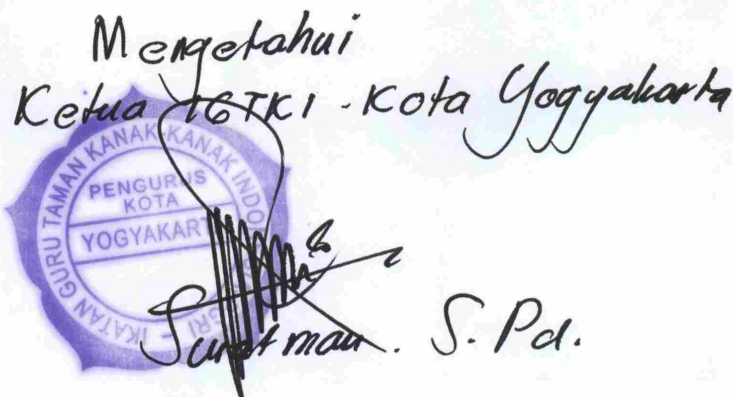 Mengetahui
Ketua IGTKI - Kota Yogyakarta
IKATAN GURU TAMAN KANAK KANAK INDO
PENGURUS
KOTA
YOGYAKART
GRI
S. Pd.